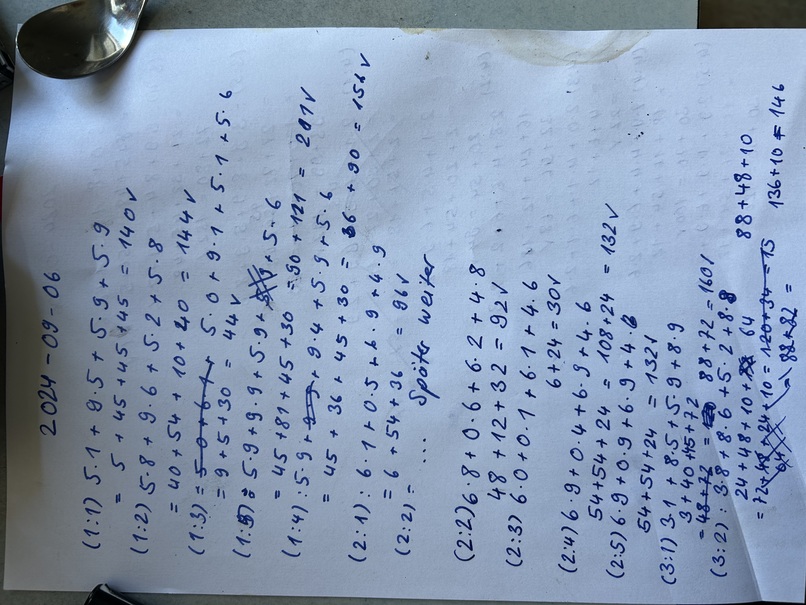 2024-09-06
(1:1) 5·1 + 9·5 + 5·9 + 5·9
= 5 + 45 + 45 + 45 = 140 √
(1:2) 5·8 + 9·6 + 5·2 + 5·8
= 40 + 54 + 10 + 40 = 144 √
(1:3) = 5·0 + 6·1 + 5·0 + 9·1 + 5·1 + 5·6
= 9 + 5 + 30 = 44 √
5·9 + 9·9 + 5·9 + 5·6
= 45 + 81 + 45 + 30 = 90 + 121 = 201 √
(1:4) : 5·9 + 9·4 + 5·9 + 5·6
= 45 + 36 + 45 + 30 = 66 + 90 = 156 √
(2:1) : 6·1 + 0·5 + 6·9 + 4·9
= 6 + 54 + 36 = 96 √
(2:2) = ... Später weiter
(2:2) 6·8 + 0·6 + 6·2 + 4·8
48 + 12 + 32 = 92 √
(2:3) 6·0 + 0·1 + 6·1 + 4·6
6 + 24 = 30 √
(2:4) 6·9 + 0·4 + 6·9 + 4·6
54 + 54 + 24 = 108 + 24 = 132 √
(2:5) 6·9 + 0·9 + 6·9 + 4·6
54 + 54 + 24 = 132 √
(3:1) 3·1 + 8·5 + 5·9 + 8·9
3 + 40 + 45 + 72
= 48 + 72 = 88 + 72 = 160 √
(3:2) : 3·8 + 8·6 + 5·2 + 8·8
24 + 48 + 10 + 64 88 + 48 + 10
= 72 + 48 + 24 + 10 = 120 + 34 = 15 136 + 10 = 146
64 88 + 82 =